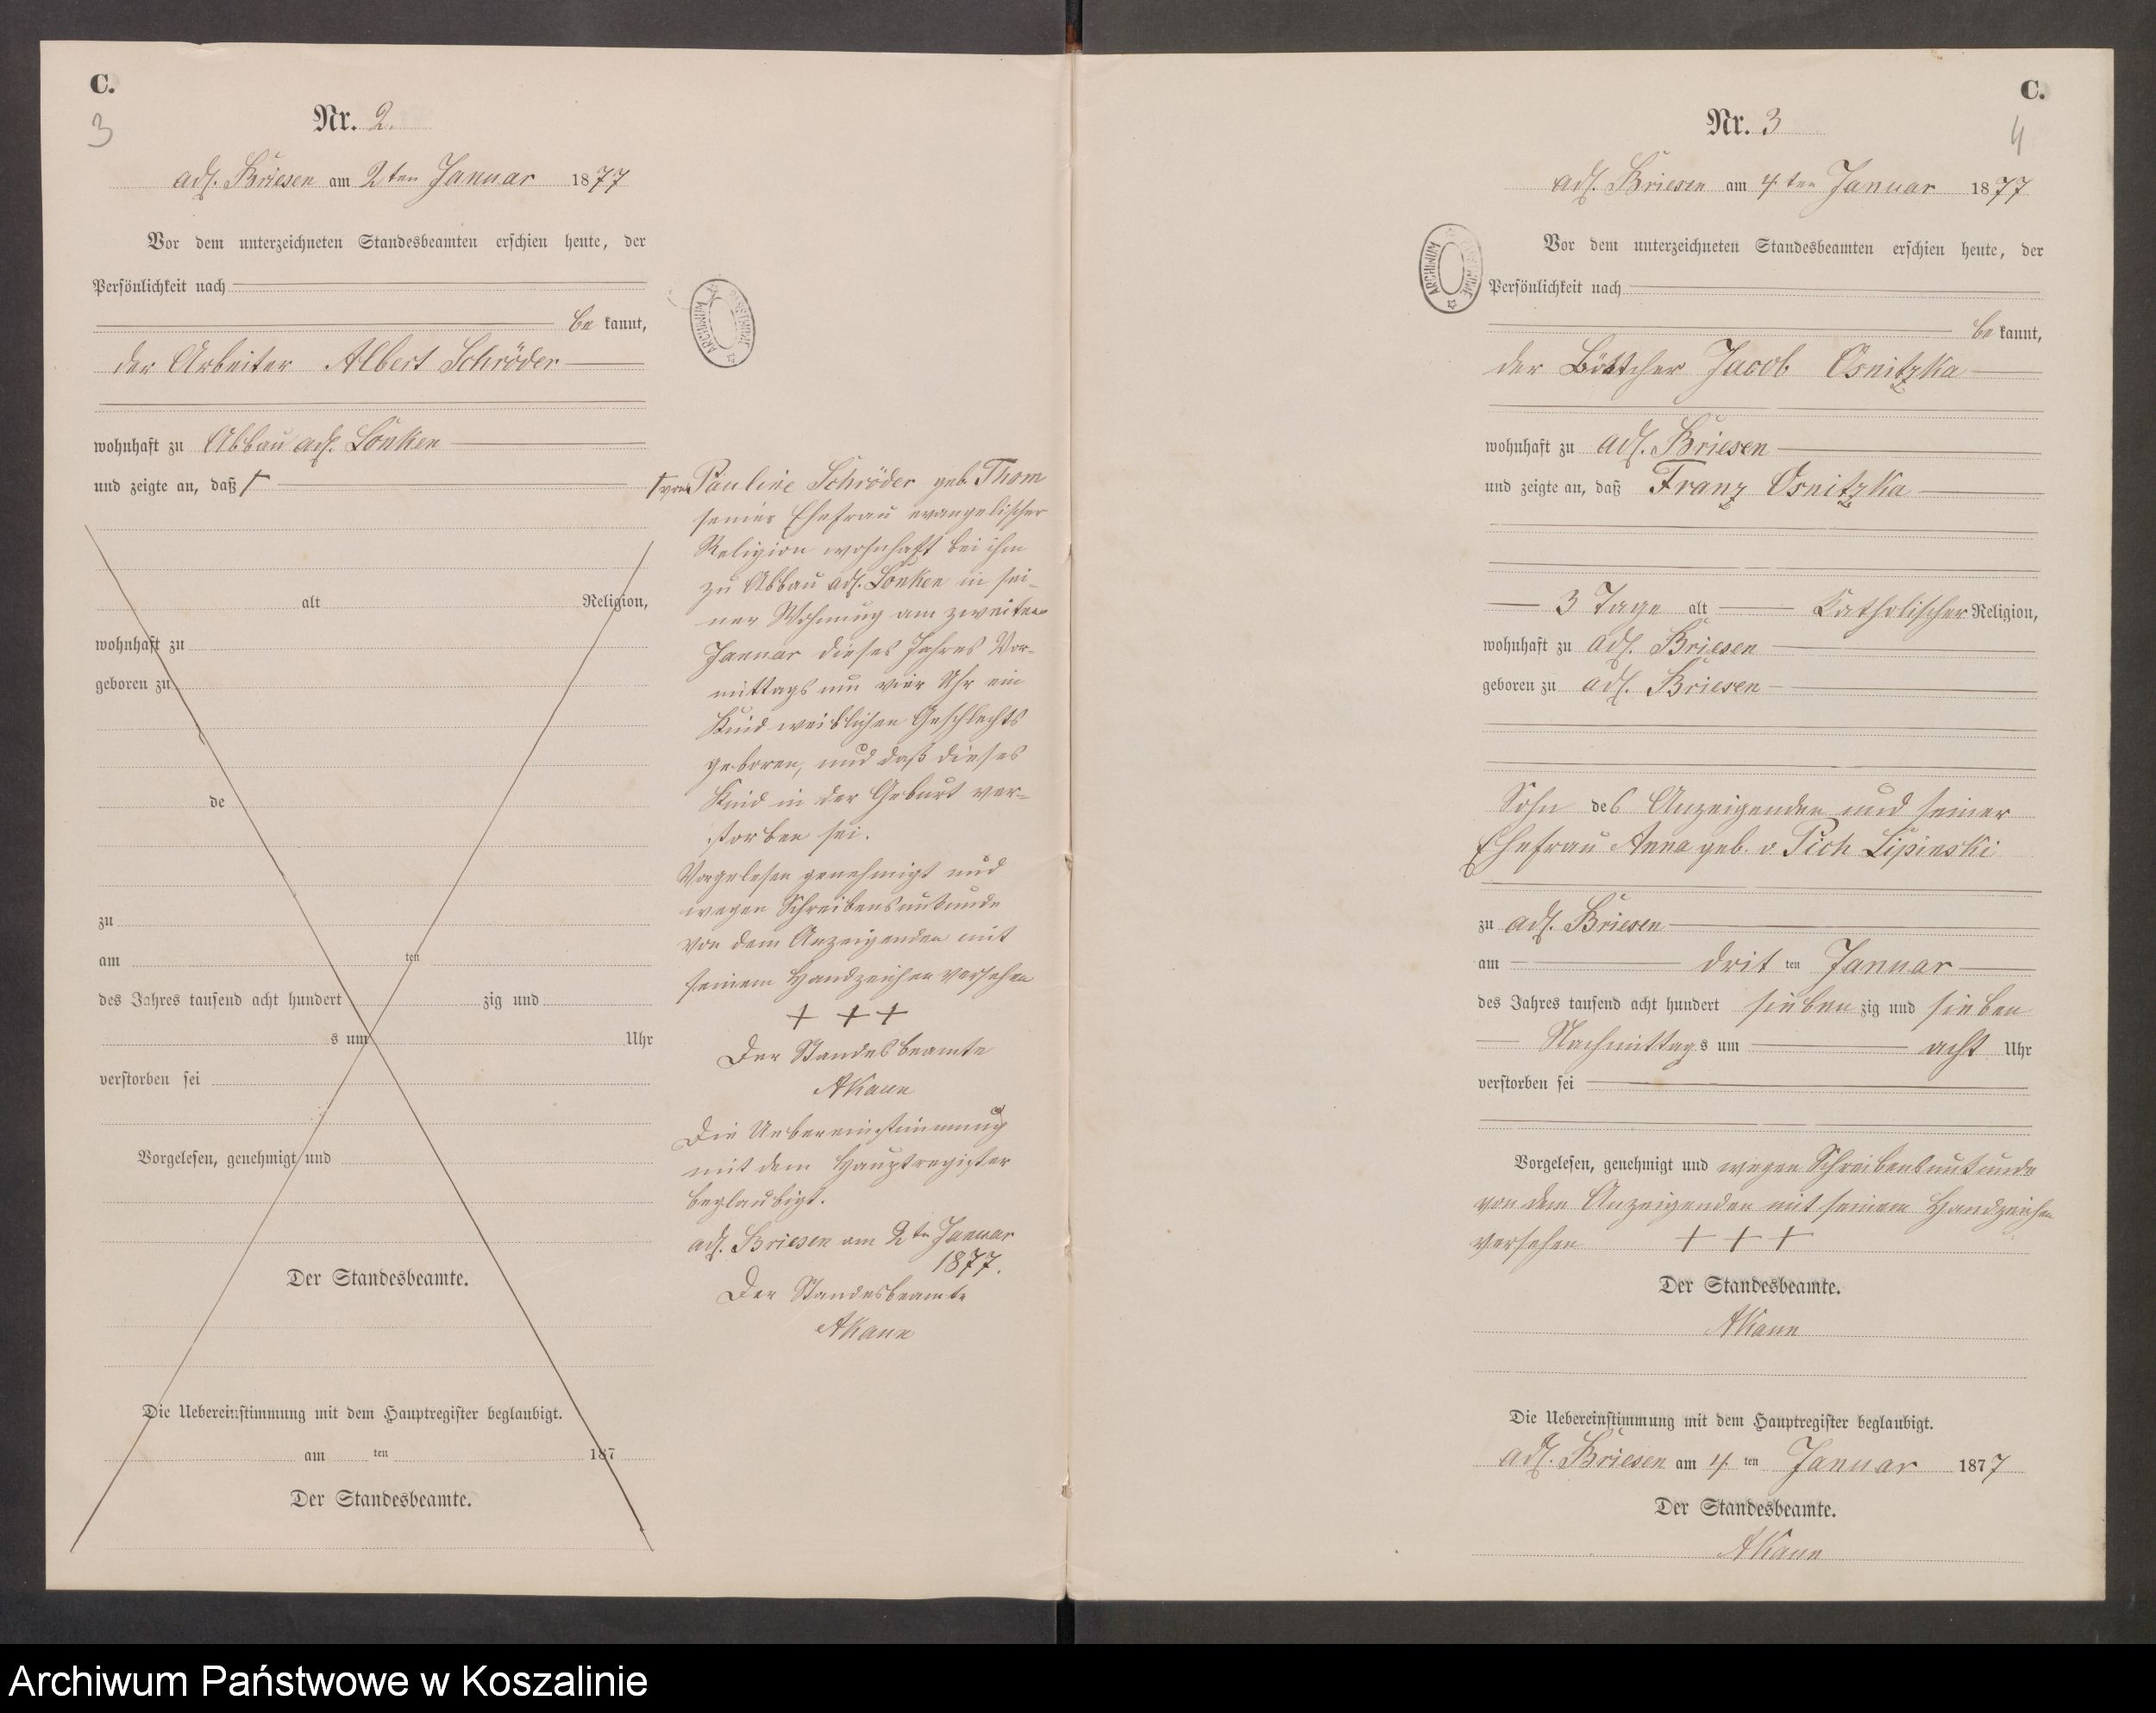 C.
3
Nr. 2.
adl. Briesen am 2ten Januar 1877
Vor dem unterzeichneten Standesbeamten erschien heute, der
Persönlichkeit nach
be kannt,
der Arbeiter Albert Schröder
wohnhaft zu Abbau adl. Lonken
und zeigte an, daß †
alt Religion,
wohnhaft zu
geboren zu
de
zu
am ten
des Jahres tausend acht hundert zig und
s um Uhr
verstorben sei
Vorgelesen, genehmigt und
Der Standesbeamte.
Die Uebereinstimmung mit dem Hauptregister beglaubigt.
am ten 187
Der Standesbeamte.
ARCHIWUM PAŃSTWOWE
† von Pauline Schröder geb Thom
seiner Ehefrau evangelischer
Religion wohnhaft bei ihm
zu Abbau adl. Lonken in sei-
ner Wohnung am zweiten
Januar dieses Jahres Vor-
mittags um vier Uhr ein
Kind weiblichen Geschlechts
geboren, und daß dieses
Kind in der Geburt ver-
storben sei.
Vorgelesen genehmigt und
wegen Schreibensunkunde
von dem Anzeigenden mit
seinem Handzeichen versehen
+ + +
Der Standesbeamte
AKann
Die Uebereinstimmung
mit dem Hauptregister
beglaubigt.
adl. Briesen am 2ten Januar
1877.
Der Standesbeamte
AKann
C.
4
Nr. 3
adl. Briesen am 4ten Januar 1877
ARCHIWUM PAŃSTWOWE
Vor dem unterzeichneten Standesbeamten erschien heute, der
Persönlichkeit nach
be kannt,
der Böttcher Jacob Osnitzka
wohnhaft zu adl. Briesen
und zeigte an, daß Franz Osnitzka
3 Tage alt Katholischer Religion,
wohnhaft zu adl. Briesen
geboren zu adl. Briesen
Sohn des Anzeigenden und seiner
Ehefrau Anna geb. v Pich Lipinski
zu adl. Briesen
am drit ten Januar
des Jahres tausend acht hundert sieben zig und sieben
Nachmittags um acht Uhr
verstorben sei
Vorgelesen, genehmigt und wegen Schreibensunkunde
von dem Anzeigenden mit seinem Handzeichen
versehen + + +
Der Standesbeamte.
AKann
Die Uebereinstimmung mit dem Hauptregister beglaubigt.
adl. Briesen am 4. ten Januar 1877
Der Standesbeamte.
AKann
Archiwum Państwowe w Koszalinie